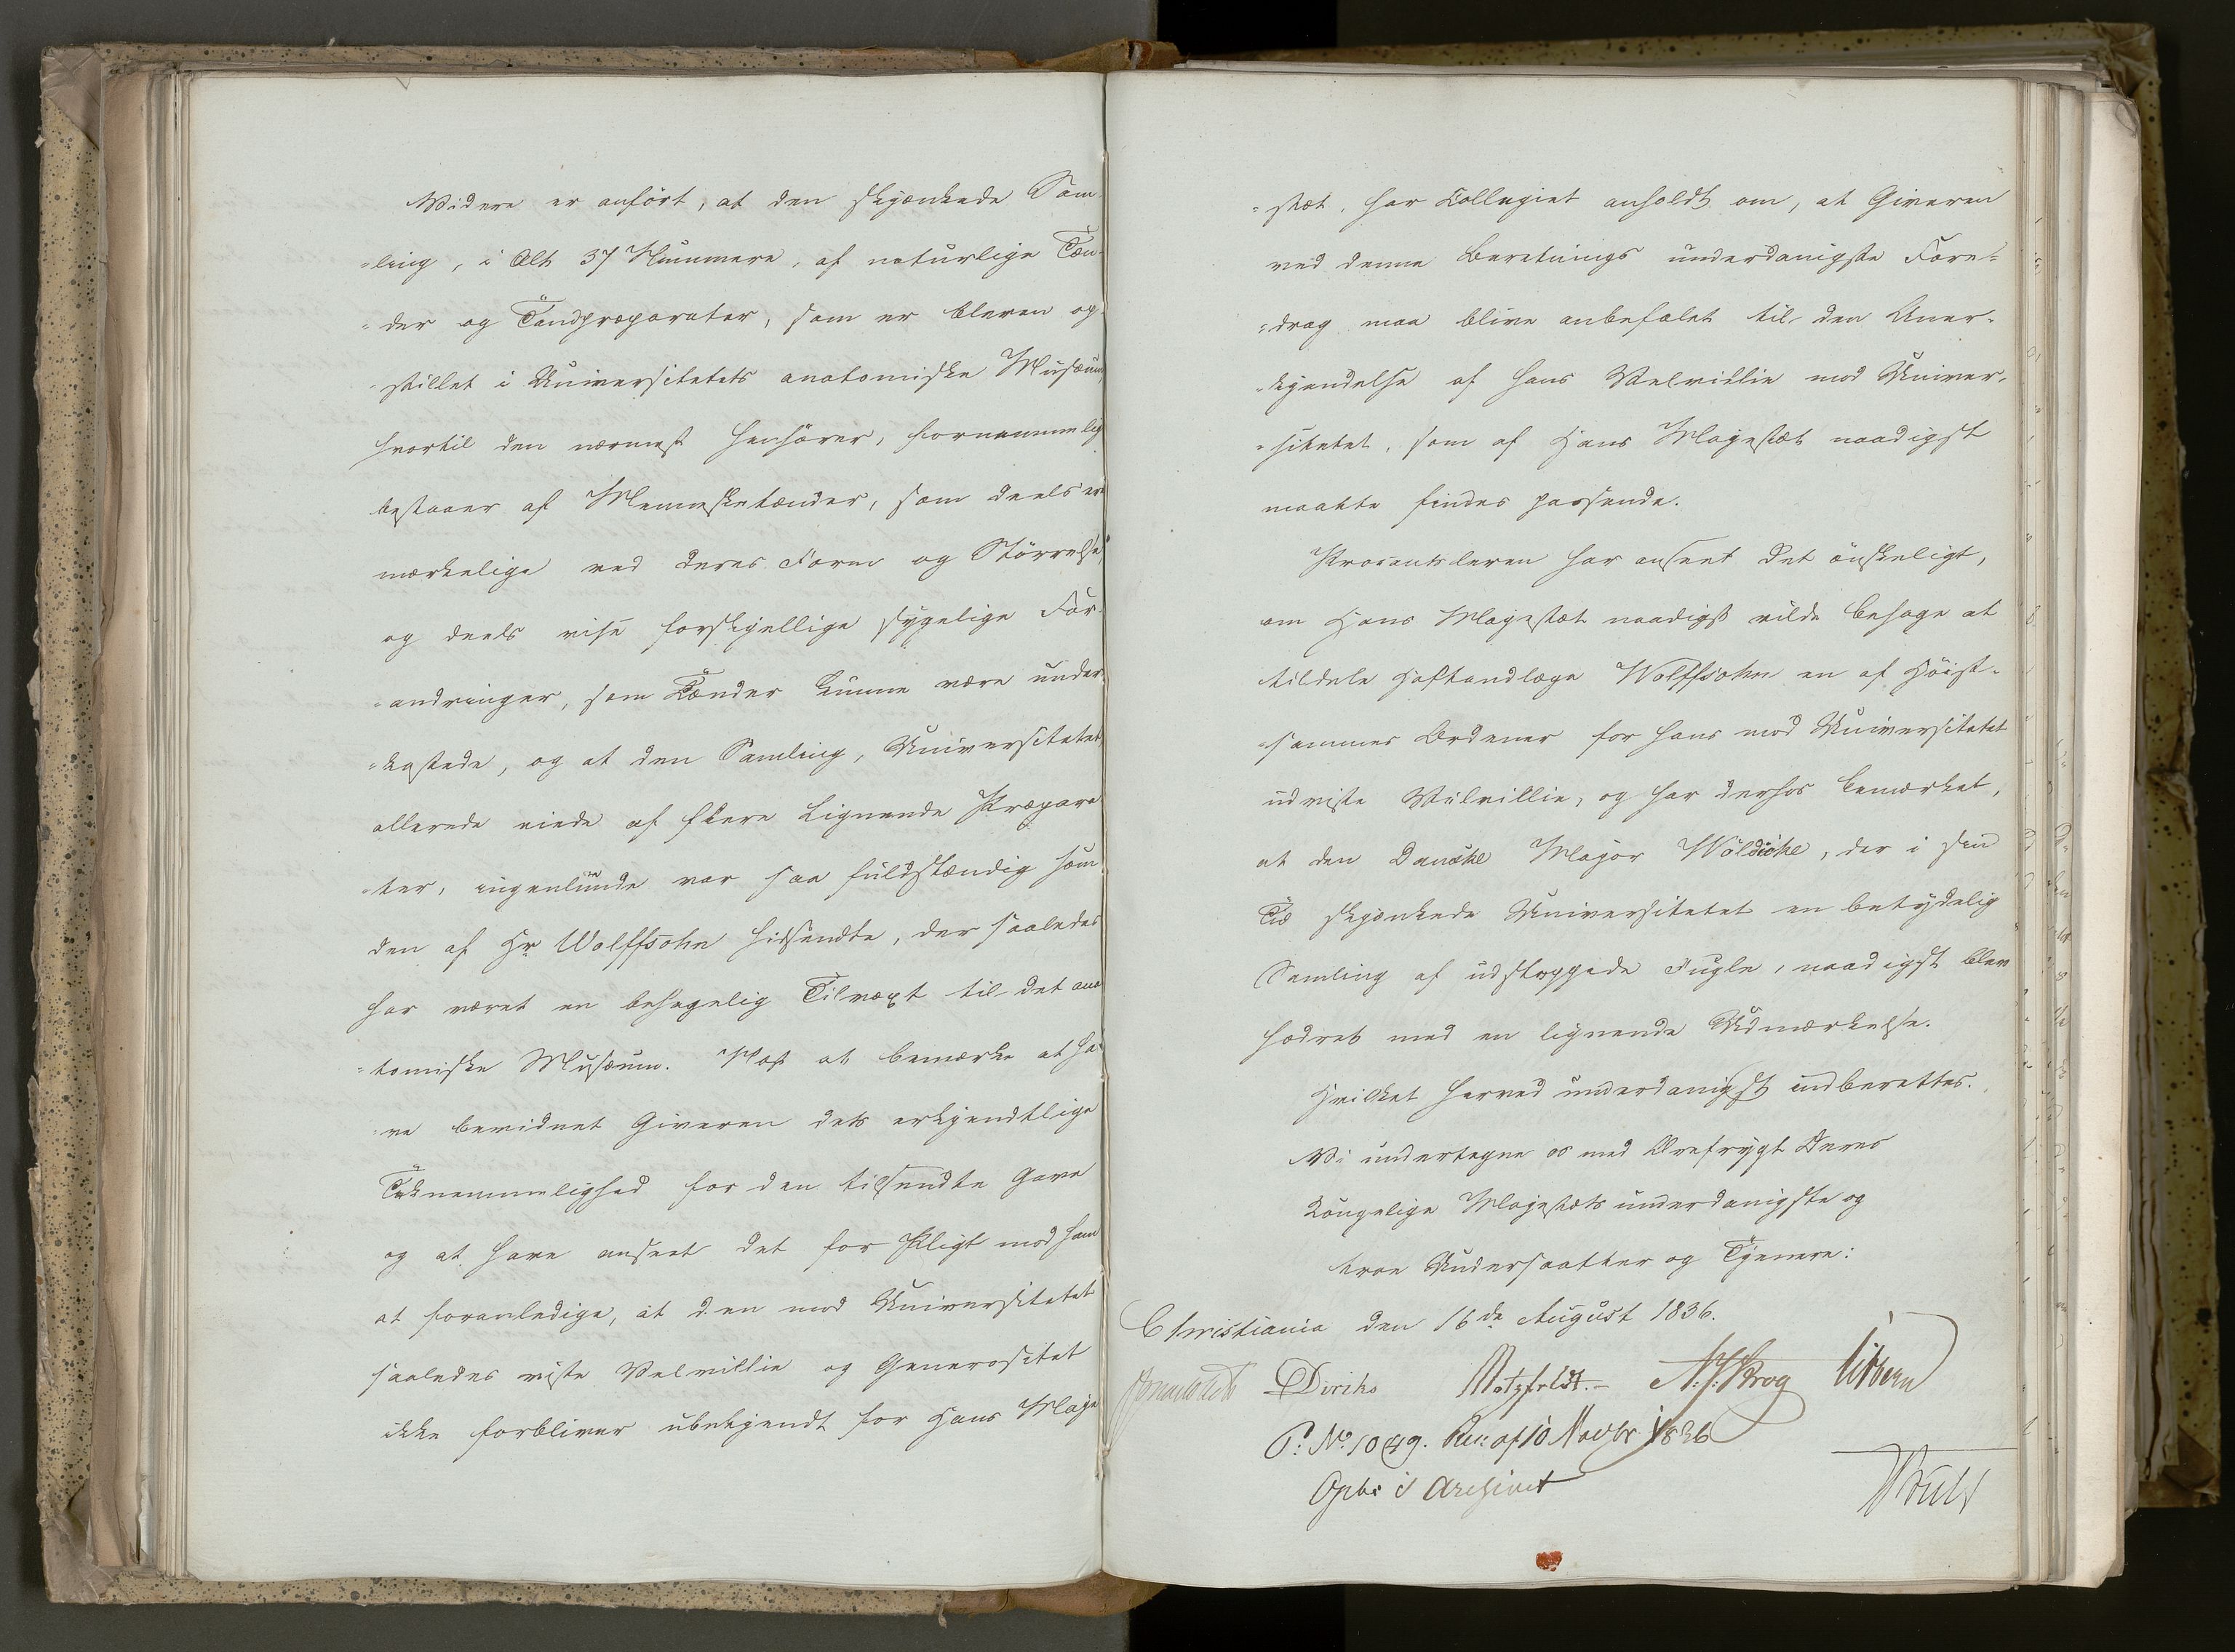 Videre er anført, at den skjænkede Sam-
-ling, i Alt 37 Nummere, af naturlige Tæn-
-der og Tandpræparater, som er bleven op-
-stillet i Universitetets anatomiske Musæum,
hvortil den nærmest henhører, fornemmelig
bestaaer af Mennesketænder, som deels ere
mærkelige ved deres Form og Størrelse,
og deels vise forskjellige sygelige For-
-andringer, som Tænder kunne være under-
-kastede, og at den Samling, Universitetet
allerede eiede af flere lignende Præpara-
-ter, ingenlunde var saa fuldstændig som
den af Hr Wolffsohn hidsendte, der saaledes
har været en behagelig Tilvæxt til det ana-
-tomiske Musæum. Næst at bemærke at ha-
-ve bevidnet Giveren dets erkjendtlige
Taknemmelighed for den tilsendte Gave
og at have anseet det for Pligt mod ham
at foranledige, at den mod Universitetet
saaledes viste Velvillie og Generositet
ikke forbliver ubekjendt for Hans Maje-
-stæt, har Collegiet anholdt om, at Giveren
ved denne Beretnings underdanigste Fore-
-drag maa blive anbefalet til den Aner-
-kjendelse af hans Velvillie mod Univer-
-sitetet, som af Hans Majestæt naadigst
maatte findes passende.
Procantsleren har anseet det ønskeligt,
om Hans Majestæt naadigst vilde behage at
tildele Hoftandlæge Wolffsohn en af Høist-
-sammes Ordener for hans mod Universitetet
udviste Velvillie, og har derhos bemærket,
at den Danske Major Wöldicke, der i sin
Tid skjænkede Universitetet en betydelig
Samling af udstoppede Fugle, naadigst blev
hædret med en lignende Udmærkelse.
Hvilket herved underdanigst indberettes.
Vi undertegne os med Ærefrygt Deres
Kongelige Majestæts underdanigste og
troe Undersaatter og Tjenere:
Christiania den 16de August 1836.
Diriks Motzfeldt.- Krog
P: No 1049. Res: af 10 Novbr 1836
Opbs i Archivet